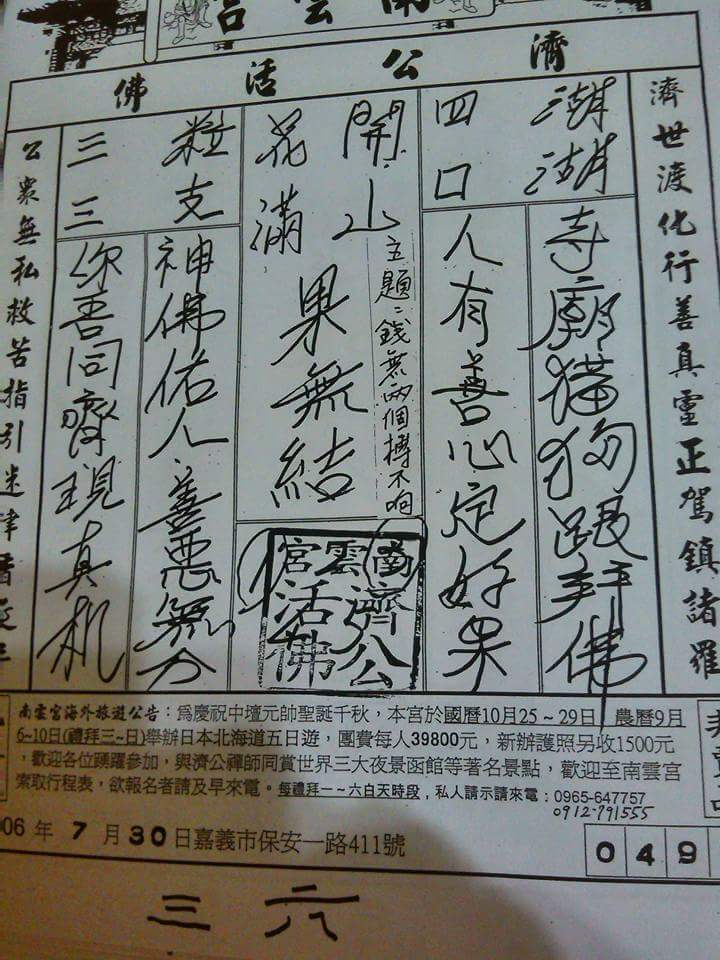 南雲宮
濟公活佛
濟世渡化行善真靈正駕鎮諸羅
潮湖
寺廟猫狗跟拜佛
四口
人有善心定好果
開山
花滿
主題：錢無兩個摶不响
果無結
南雲宮
濟公
活佛
粒支
神佛佑人善惡無分
三三
你吾同齊現真机
公衆無私救苦指引迷津
南雲宮海外旅遊公告：為慶祝中壇元帥聖誕千秋，本宮於國曆10月25～29日，農曆9月
6~10日(禮拜三~日)舉辦日本北海道五日遊，團費每人39800元，新辦護照另收1500元
，歡迎各位踴躍參加，與濟公禪師同賞世界三大夜景函館等著名景點，歡迎至南雲宮
索取行程表，欲報名者請及早來電。每禮拜一～六白天時段，私人請示請來電：0965-647757
0912-791555
006 年 7 月 30 日嘉義市保安一路411號
049
三六